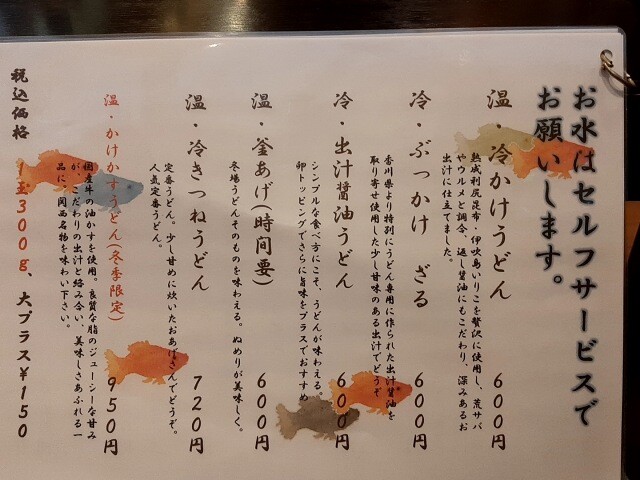 お水はセルフサービスで
お願いします。
温・冷かけうどん 600円
熟成利尻昆布・伊吹島いりこを贅沢に使用し、荒サバ
やウルメと調合、返し醤油にもこだわり、深みあるお
出汁に仕立てました。
冷・ぶっかけ ざる 600円
香川県より特別にうどん専用に作られた出汁醤油を
取り寄せ使用した少し甘味のある出汁でどうぞ
冷・出汁醤油うどん 600円
シンプルな食べ方にこそ、うどんが味わえる。
卵トッピングでさらに旨味をプラスでおすすめ
温・釜あげ(時間要) 600円
冬場うどんそのものを味わえる。ぬめりが美味しく。
温・冷きつねうどん 720円
定番うどん。少し甘めに炊いたおあげさんでどうぞ。
人気定番うどん。
温・かけかすうどん(冬季限定) 950円
国産牛の油かすを使用。良質な脂のジューシーな甘み
が、こだわりの出汁と絡み合い、美味しさあふれる一
品に、関西名物を味わい下さい。
税込価格 1玉300g、大プラス¥150